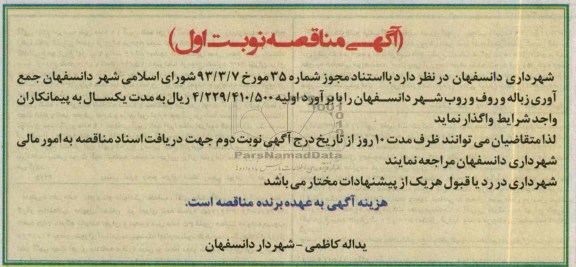 (آگهی مناقصه نوبت اول)
شهرداری دانسفهان در نظر دارد بااستناد مجوز شماره ۳۵ مورخ ۹۳/۳/۷ شورای اسلامی شهر دانسفهان جمع
آوری زباله و روف و روب شهر دانسفهان را با برآورد اولیه ۴/۲۲۹/۴۱۰/۵۰۰ ریال به مدت یکسال به پیمانکاران
واجد شرایط واگذار نماید
لذا متقاضیان می توانند ظرف مدت ۱۰ روز از تاریخ درج آگهی نوبت دوم جهت دریافت اسناد مناقصه به امور مالی
شهرداری دانسفهان مراجعه نمایند
ParsNamadData
شهرداری در رد یا قبول هریک از پیشنهادات مختار می باشد
هزینه آگهی به عهده برنده مناقصه است.
یداله کاظمی - شهردار دانسفهان